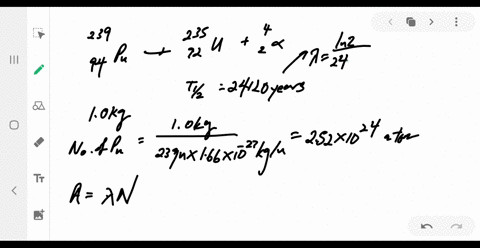 ²³⁹₉₄Pu → ²³⁵₇₂U + ⁴₂α
T½ = 24120 years → λ = ln2/24
1.0kg
No. of Pu = 1.0kg / 239u × 1.66 × 10⁻²⁷ kg/u = 2.52 × 10²⁴ atoms
A = λN